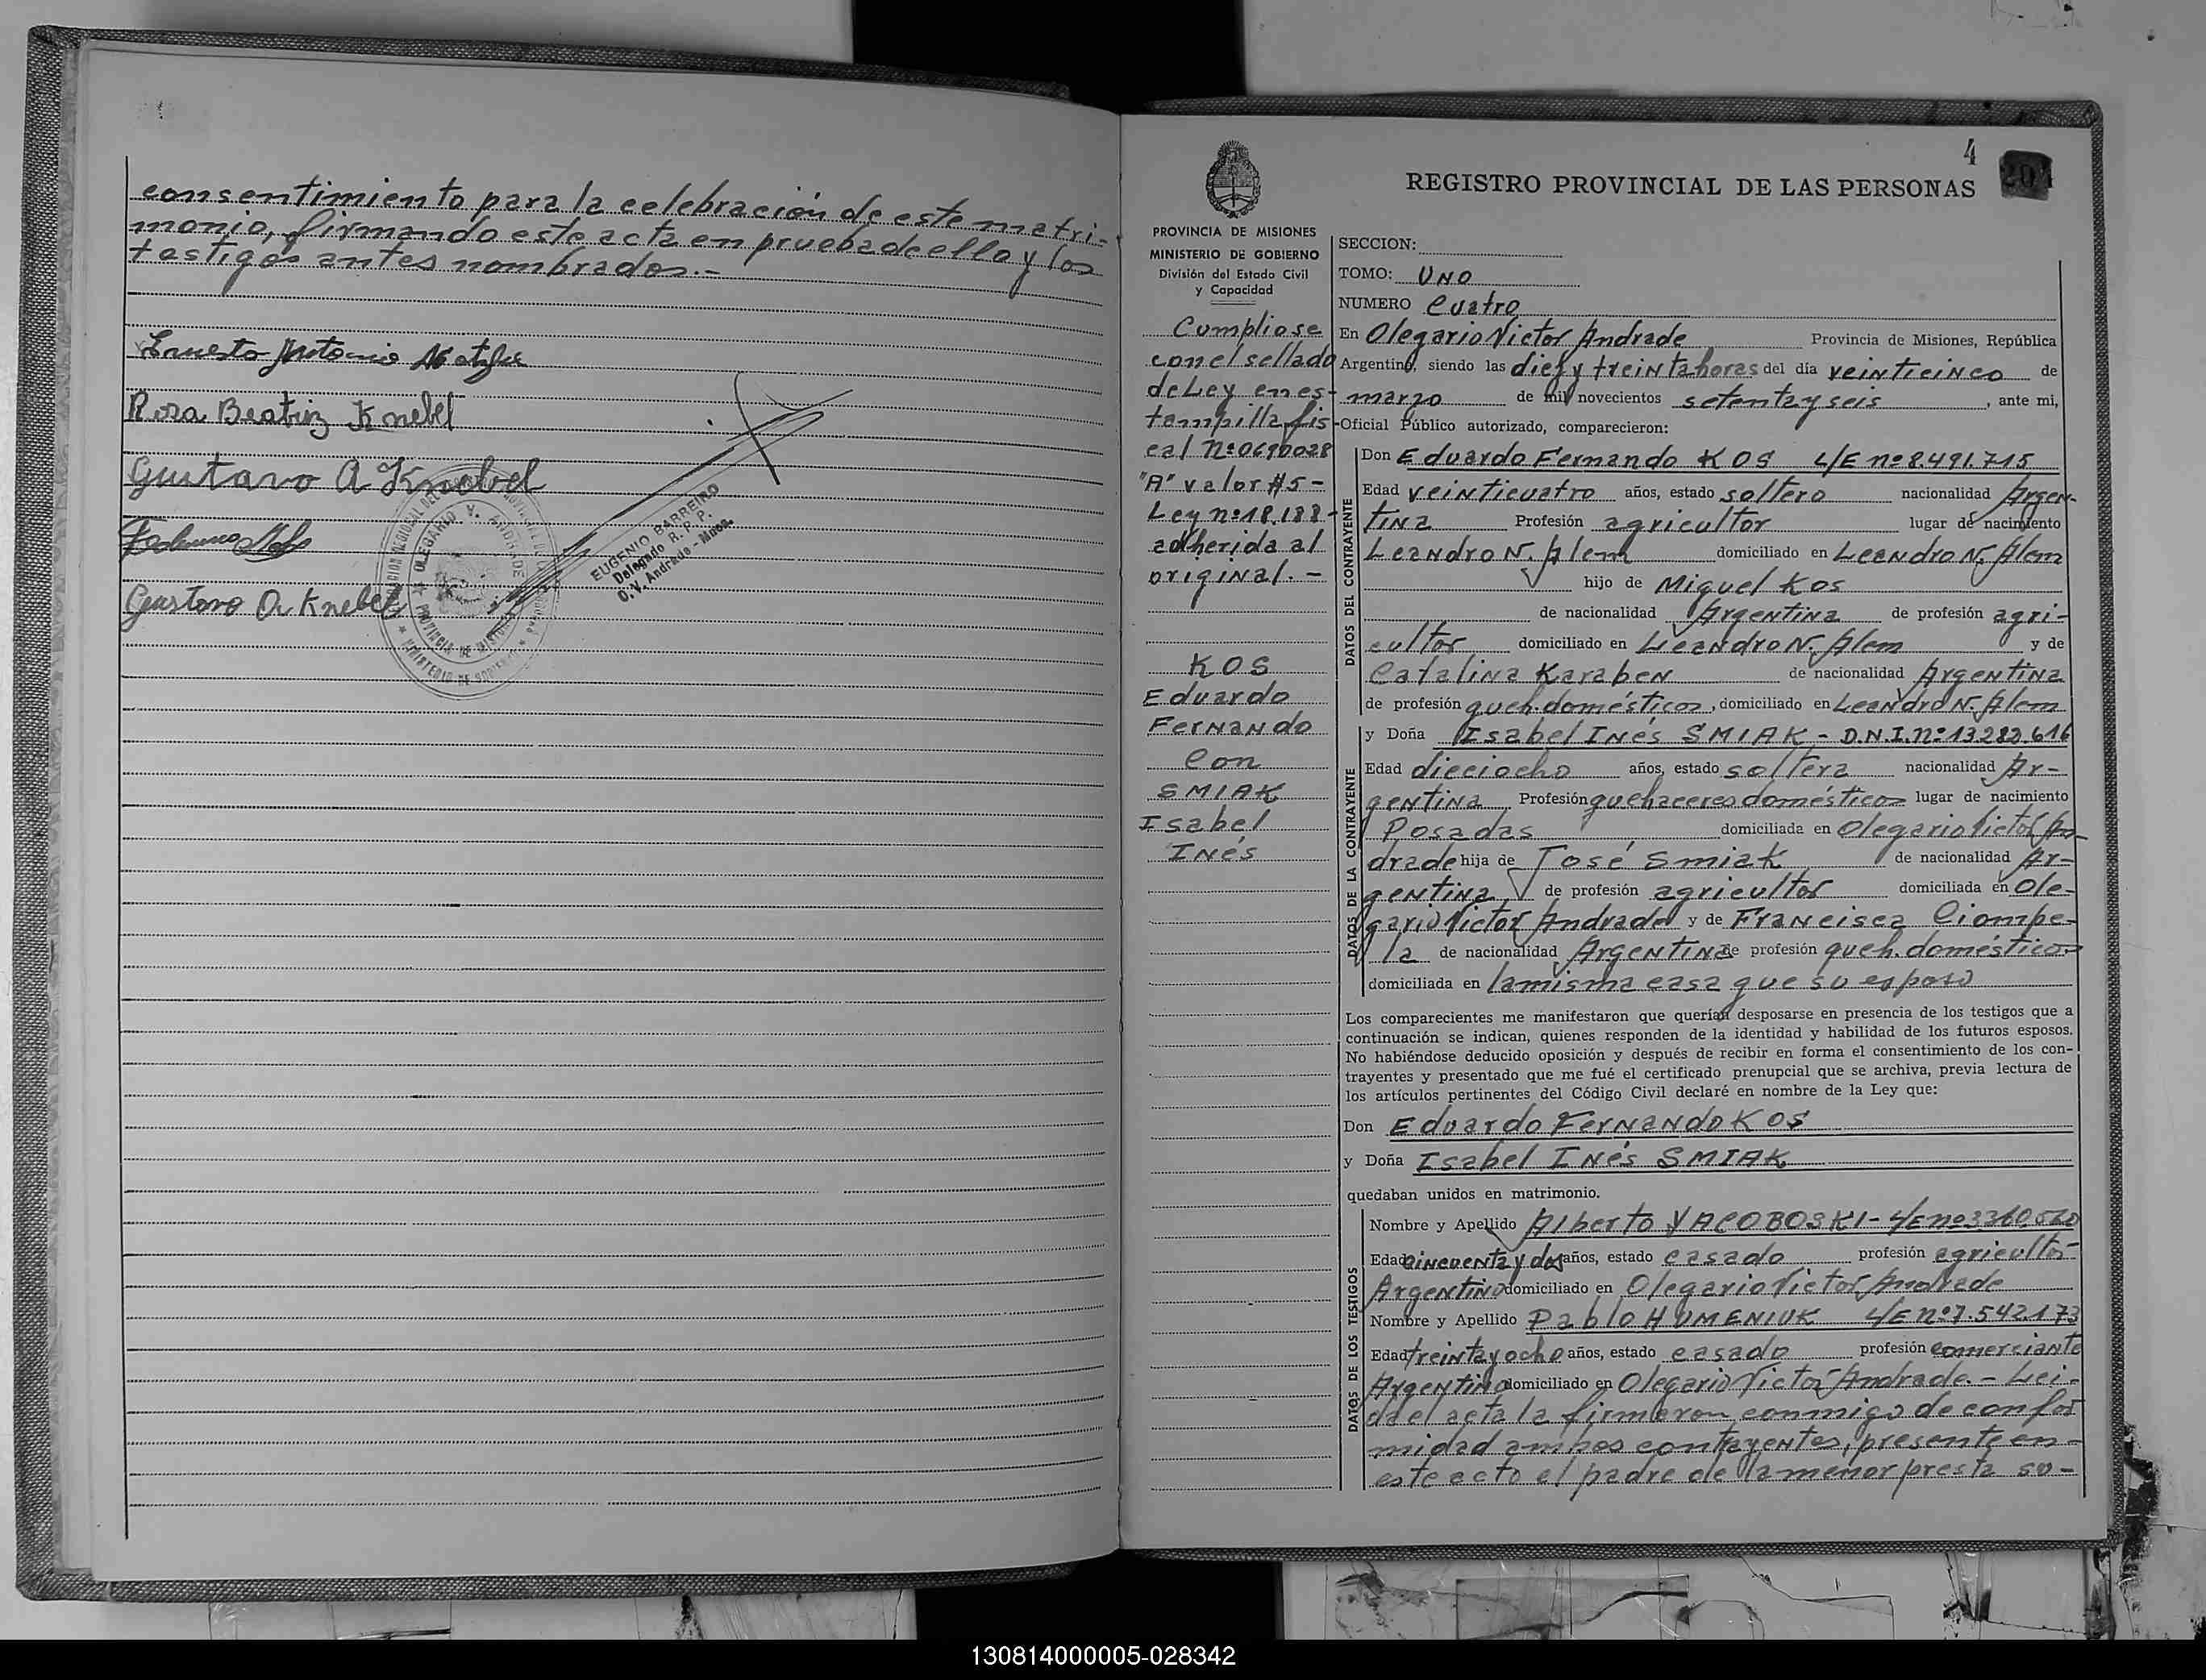 consentimiento para la celebración de este matri-
monio, firmando este acta en prueba de ello y los
testigos antes nombrados.-
Ernesto Antonio
Rosa Beatriz Knebel
Gustavo A Knebel
Gustavo A Knebel
OLEGARIO V. ANDRADE
PROVINCIA DE MISIONES
MINISTERIO DE GOBIERNO
EUGENIO BARREIRO
Delegado R. P. P.
O. V. Andrade - Mnes.
4
204
REGISTRO PROVINCIAL DE LAS PERSONAS
PROVINCIA DE MISIONES
MINISTERIO DE GOBIERNO
División del Estado Civil
y Capacidad
Cumpliose
con el sellado
de Ley en es-
tampilla fis-
cal Nº 0690028
"A" valor $5-
Ley nº 18.188-
adherida al
original.-
KOS
Eduardo
Fernando
Con
SMIAK
Isabel
Inés
SECCION:
TOMO: UNO
NUMERO Cuatro
En Olegario Victor Andrade Provincia de Misiones, República
Argentina, siendo las diez y treinta horas del día veinticinco de
marzo de mil novecientos setenta y seis, ante mi,
Oficial Público autorizado, comparecieron:
DATOS DEL CONTRAYENTE
Don Eduardo Fernando KOS L/E nº 8.491.715
Edad veinticuatro años, estado soltero nacionalidad Argen-
tina Profesión agricultor lugar de nacimiento
Leandro N. Alem domiciliado en Leandro N. Alem
hijo de Miguel Kos
de nacionalidad Argentina de profesión agri-
cultor domiciliado en Leandro N. Alem y de
Catalina Karaben de nacionalidad Argentina
de profesión queh. domésticos, domiciliado en Leandro N. Alem
DATOS DE LA CONTRAYENTE
y Doña Isabel Inés SMIAK - D.N.I. nº 13282.616
Edad dieciocho años, estado soltera nacionalidad Ar-
gentina Profesión quehaceres domésticos lugar de nacimiento
Posadas domiciliada en Olegario Victor An-
drade hija de José Smiak de nacionalidad Ar-
gentina de profesión agricultor domiciliada en Ole-
gario Victor Andrade y de Francisca Ciompe-
la de nacionalidad Argentina de profesión queh. domésticos
domiciliada en la misma casa que su esposo
Los comparecientes me manifestaron que querían desposarse en presencia de los testigos que a
continuación se indican, quienes responden de la identidad y habilidad de los futuros esposos.
No habiéndose deducido oposición y después de recibir en forma el consentimiento de los con-
trayentes y presentado que me fué el certificado prenupcial que se archiva, previa lectura de
los artículos pertinentes del Código Civil declaré en nombre de la Ley que:
Don Eduardo Fernando KOS
y Doña Isabel Inés SMIAK
quedaban unidos en matrimonio.
DATOS DE LOS TESTIGOS
Nombre y Apellido Alberto YACOBOSKI - L/E nº 3360520
Edad cincuenta y dos años, estado casado profesión agricultor
Argentino domiciliado en Olegario Victor Andrade
Nombre y Apellido Pablo HUMENIUK L/E nº 7.542.173
Edad treinta y ocho años, estado casado profesión comerciante
Argentino domiciliado en Olegario Victor Andrade.- Lei-
da el acta la firmaron conmigo de confor
midad ambos contrayentes, presente en-
este acto el padre de la menor presta su-
130814000005-028342